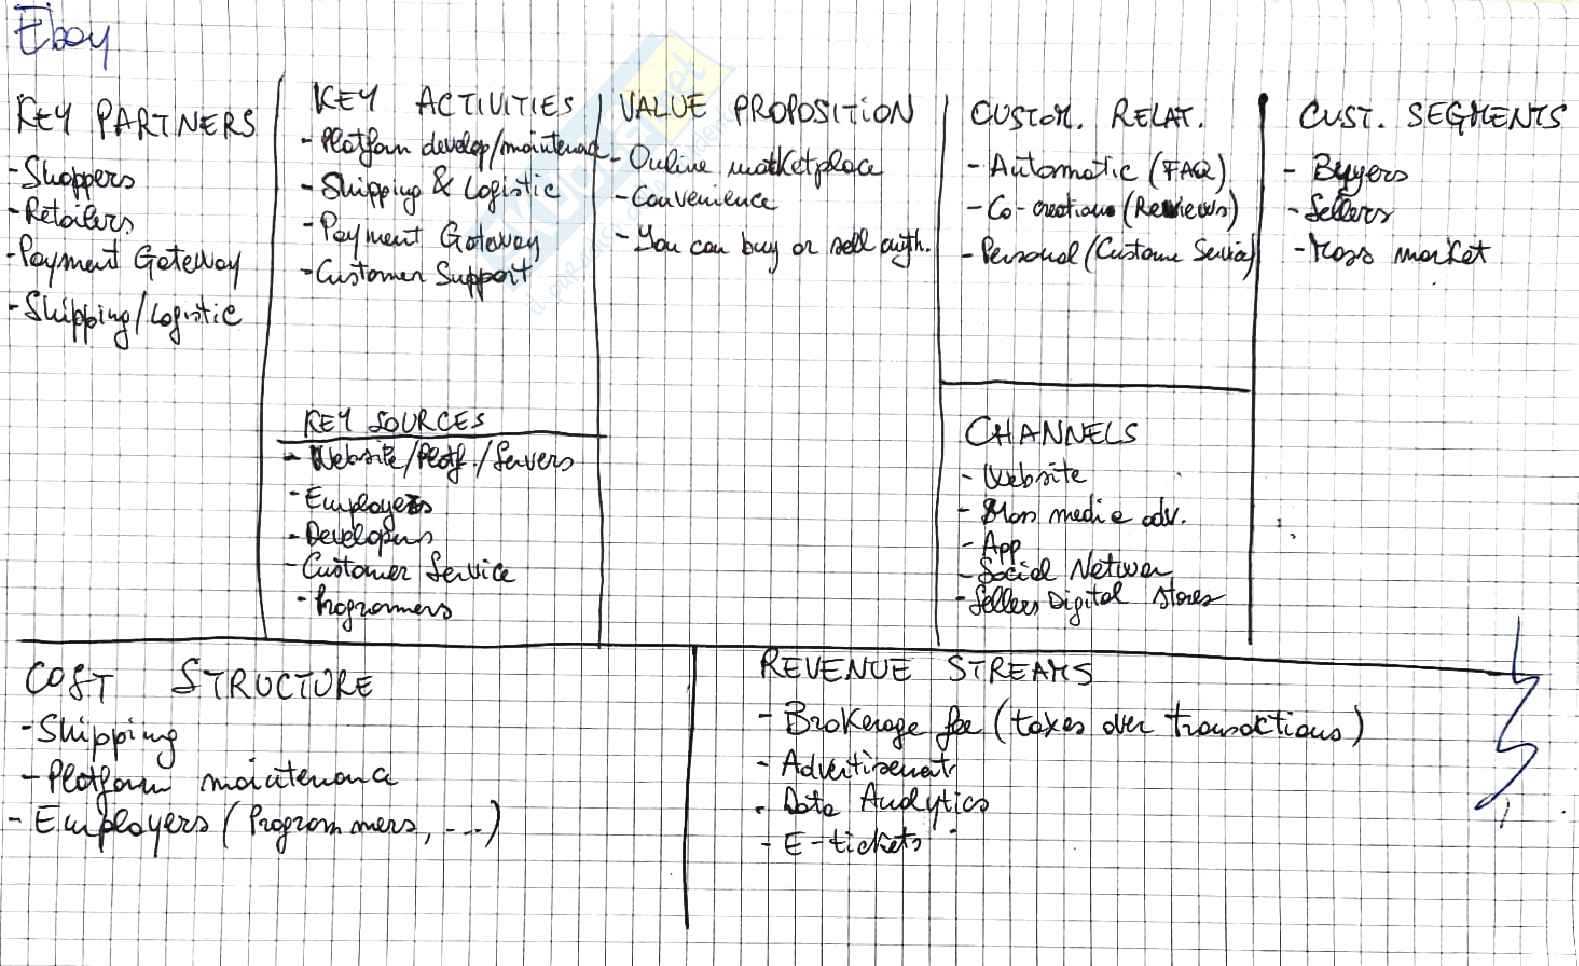 Ebay
KEY PARTNERS
- Shoppers
- Retailers
- Payment Gateway
- Shipping/Logistic
KEY ACTIVITIES
- Platform develop/maintenac
- Shipping & Logistic
- Payment Gateway
- Customer Support
KEY SOURCES
- Website/Platf./Servers
- Employers
- Developers
- Customer Service
- Programmers
VALUE PROPOSITION
- Online marketplace
- Convenience
- You can buy or sell anyth.
CUSTOM. RELAT.
- Automatic (FAQ)
- Co-creation (Reviews)
- Personal (Custome Service)
CHANNELS
- Website
- Mass media adv.
- App
- Social Networ
- Sellers Digital stores
CUST. SEGMENTS
- Buyers
- Sellers
- Mass market
COST STRUCTURE
- Shipping
- Platform maintenance
- Employers (Programmers, ---)
REVENUE STREAMS
- Brokerage fee (taxes over transactions)
- Advertisement
- Data Analytics
- E-tickets